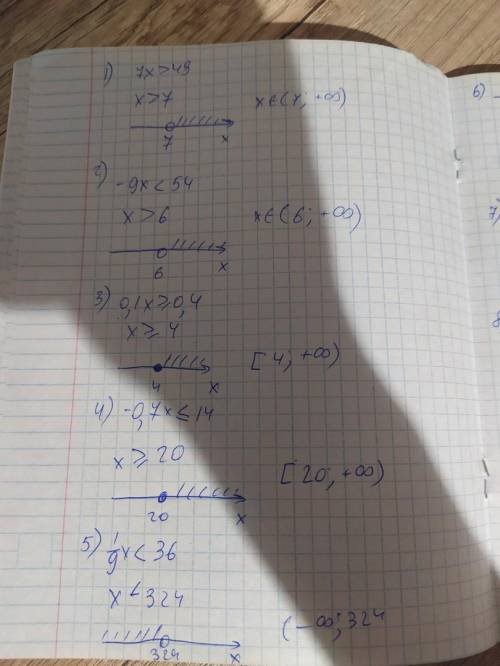 1) 7x>49
x>7 x∈(7; +∞)
7 x
2) -9x<54
x>6 x∈(6; +∞)
6 x
3) 0,1x≥0,4
x≥4
[4; +∞)
4 x
4) -0,7x≤14
x≥20
[20; +∞)
20 x
5) 1/9x<36
x<324
(-∞; 324
324 x
6)
7)
8